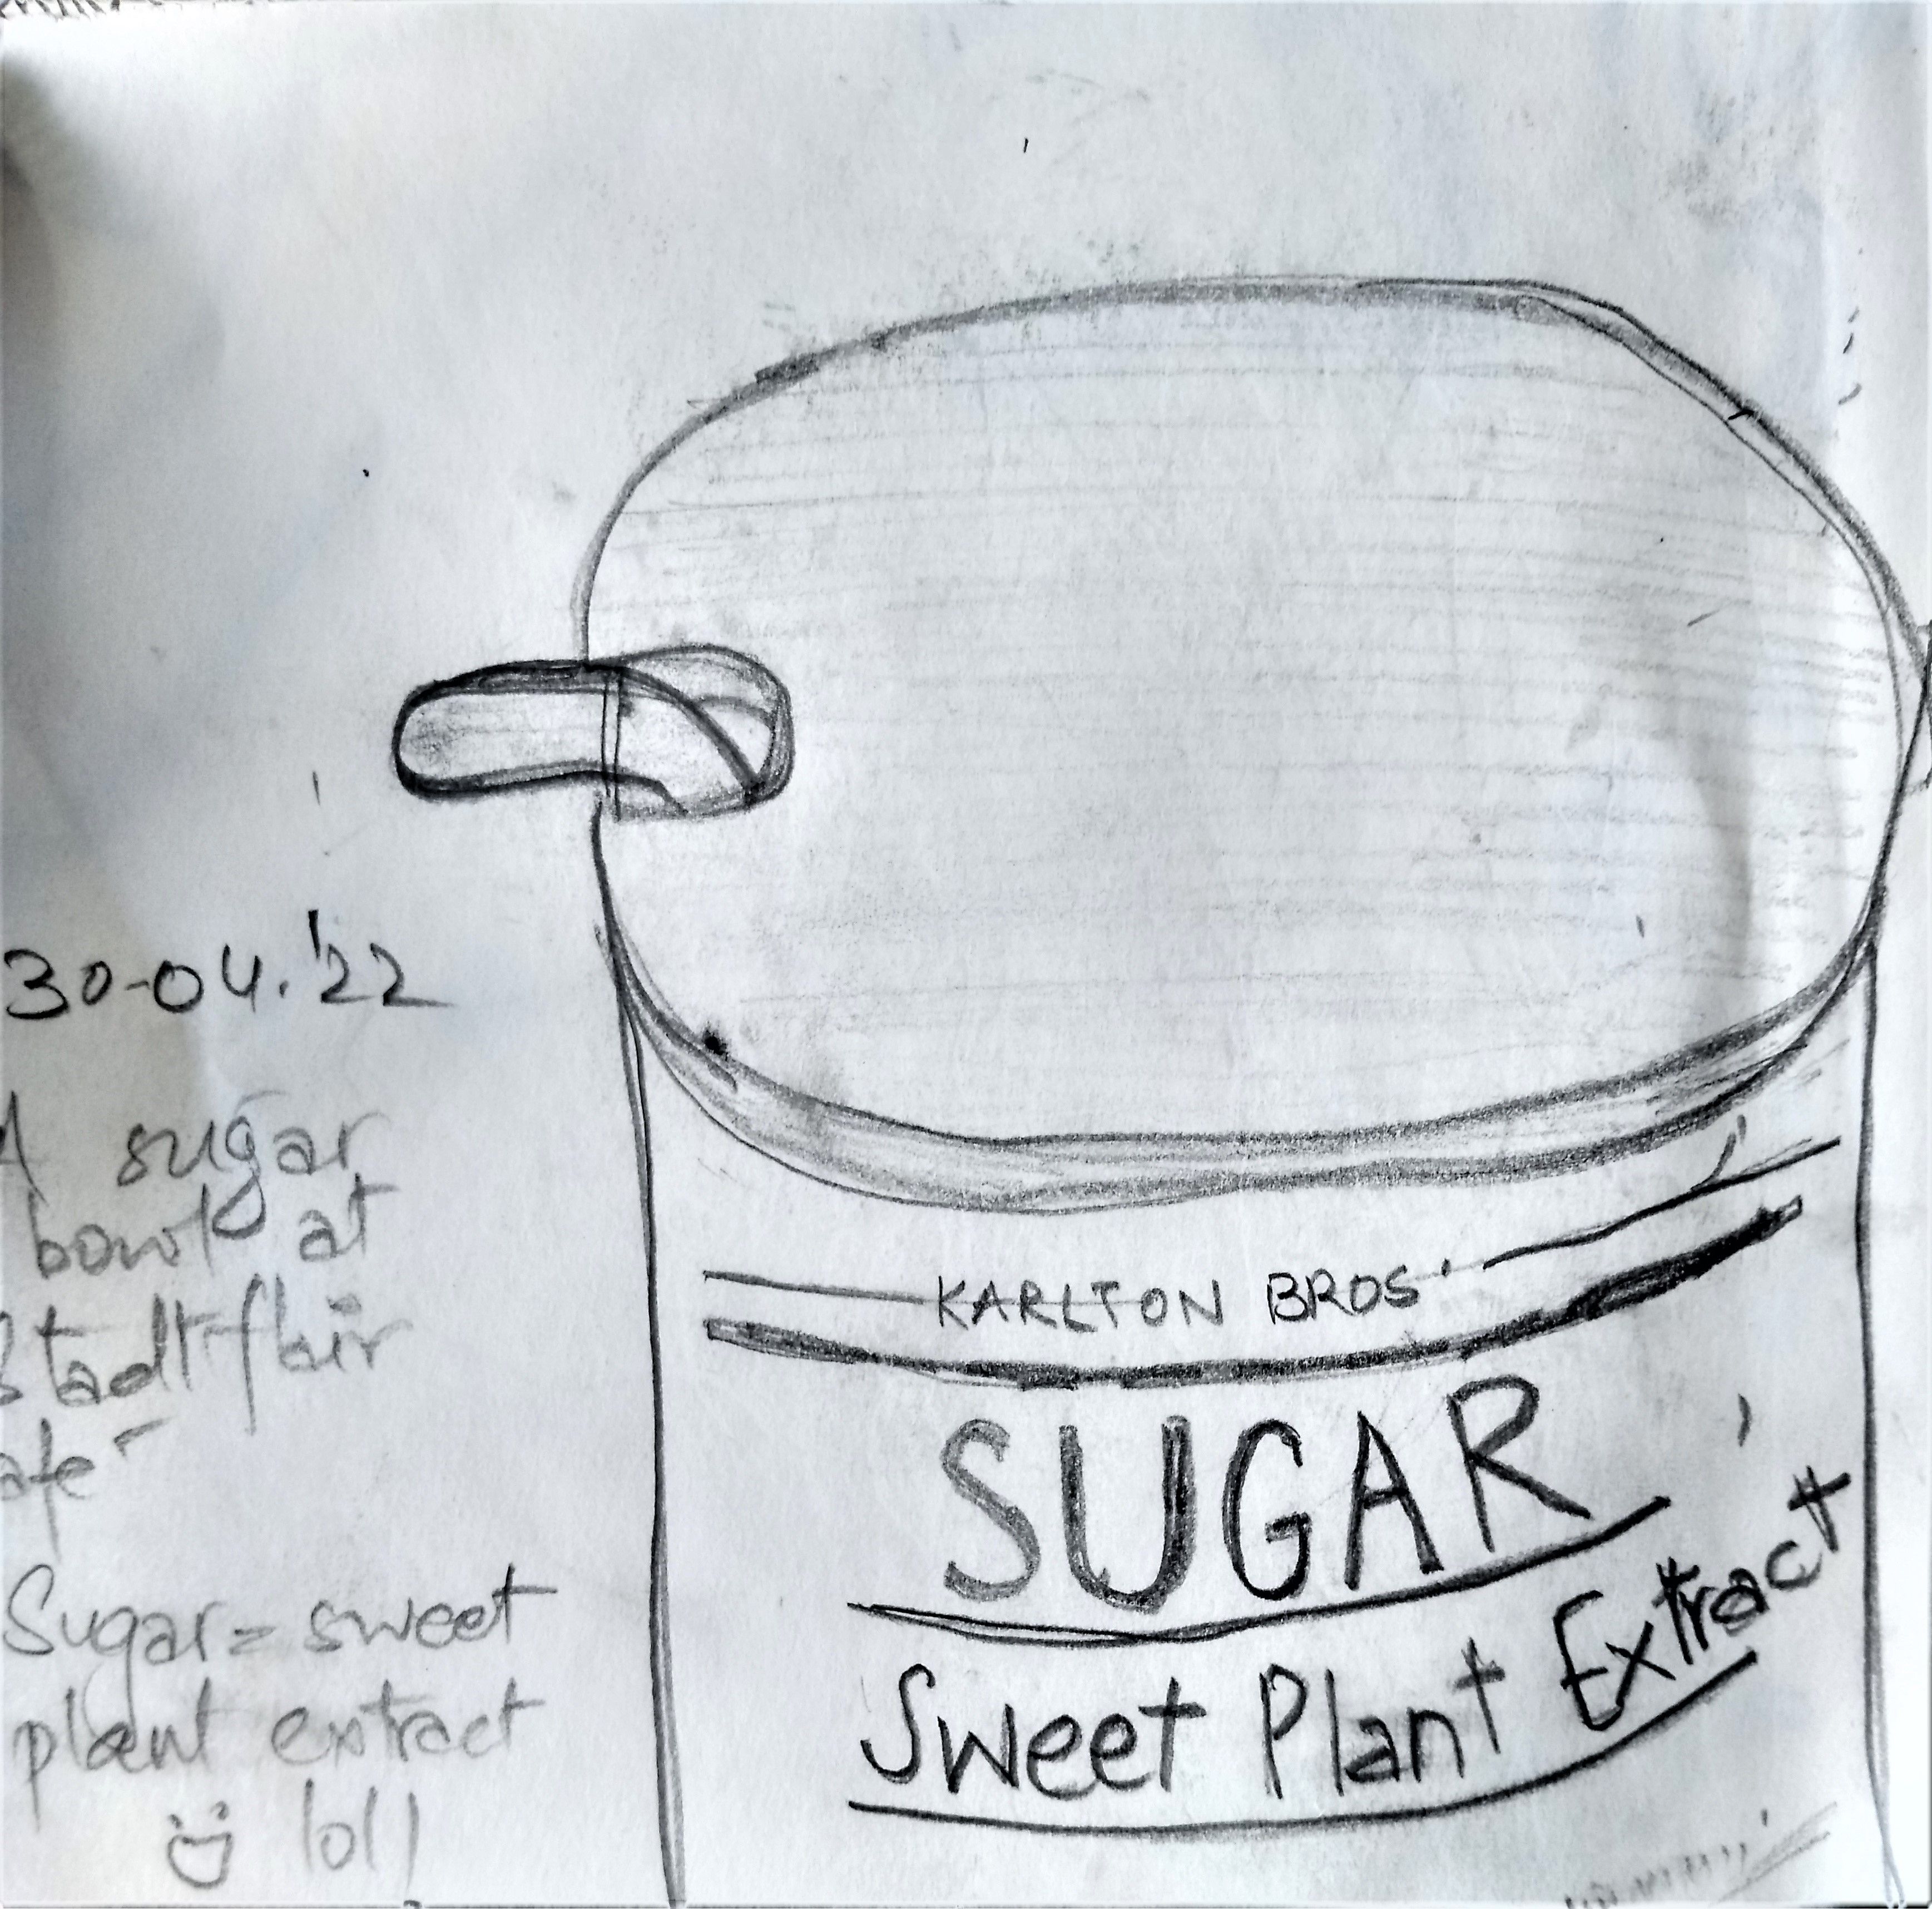 30-04.'22
A sugar
bowl at
Stadtflair
afe
Sugar = sweet
plant extract
lol!
KARLTON BROS'
SUGAR
Sweet Plant Extract